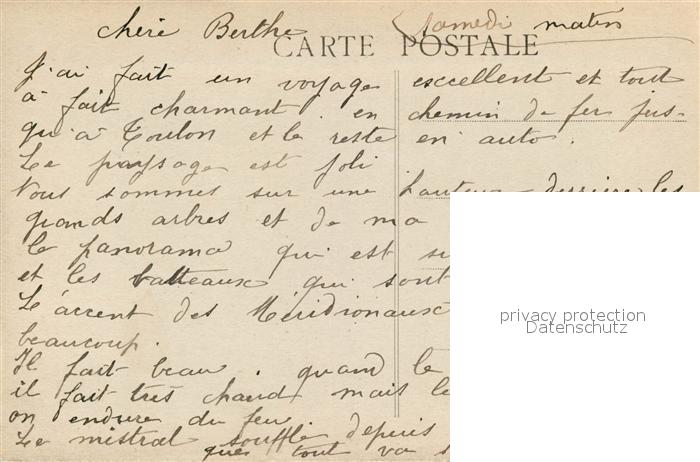 chère Berthe samedi matin
CARTE POSTALE
J'ai fait un voyage excellent et tout
à fait charmant. en chemin de fer jus-
qu'à Toulon et le reste en auto.
Le paysage est joli
Nous sommes sur une hauteur derrière les
grands arbres et de ma
le panorama qui est su
et les batteaux qui sont
L'accent des Méridionaux
beaucoup.
Il fait beau. quand le
il fait très chaud mais le
on endure du feu.
Le mistral souffle depuis
que tout va
privacy protection
Datenschutz